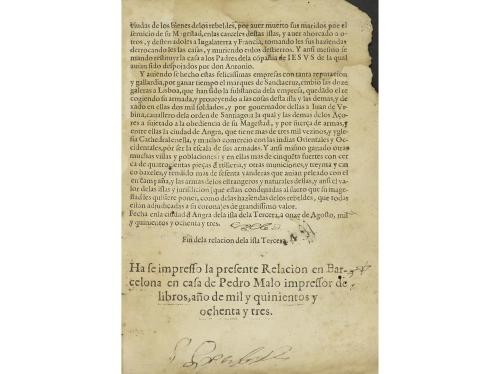 viudas de los bienes delos rebeldes, por auer muerto sus maridos por el
seruicio de su Magestad, enlas carceles destas islas, y auer ahorcado a o-
tros, y desterradoles a Inglaterra y Francia, tomando les sus haziendas
derrocando les las casas, y muriendo enlos destierros. Y ansi mesmo se
mando restituyr la casa a los Padres dela cōpañia de IESVS de la qual
auian sido despojados por don Antonio.
Y auiendo se hecho estas felicissimas empresas con tanta reputacion
y gallardia, por ganar tiempo el marques de Sanctacruz, embio las doze
galeras a Lisboa, que han sido la substancia dela empresa, quedādo el re
cogiendo su armada, y proueyendo a las cosas desta isla y las demas, y de
xado en ellas dos mil soldados, y por gouernador dellas a Juan de Vr-
bina, cauallero dela orden de Santiago: a la qual y las demas delos Aço-
res a sujetado a la obediencia de su Magestad, y por fuerça de armas, y
entre ellas la ciudad de Angra, que tiene mas de tres mil vezinos, y ygle
sia Cathedral enella, y mucho comercio con las indias Orientales y Oc-
cidentales, por ser la escala de sus armadas. Y ansi mismo ganado otras
muchas villas y poblaciones: y en ellas mas de cinquēta fuertes con cer
ca de quatrocientas pieças d'artilleria, y otras municiones, y treyma y cin
co baxeles, y rendido mas de sesenta vanderas que anian peleado con el
en campaña, y las armas delos estrangeros y naturales dellas, y ansi el va
lor delas islas y jurisdicion
les quisiere poner, como delas haziendas delos rebeldes, que todas
estan adjudicadas a su corona es de grandissimo valor.
Fecha enla ciudad d'Angra dela isla dela Tercera, a onze de Agosto, mil
y quinientos y ochenta y tres.
Fin dela relacion dela isla Tercera
Ha se impresso la presente Relacion en Bar-
celona en casa de Pedro Malo impressor de
libros, año de mil y quinientos y
ochenta y tres.